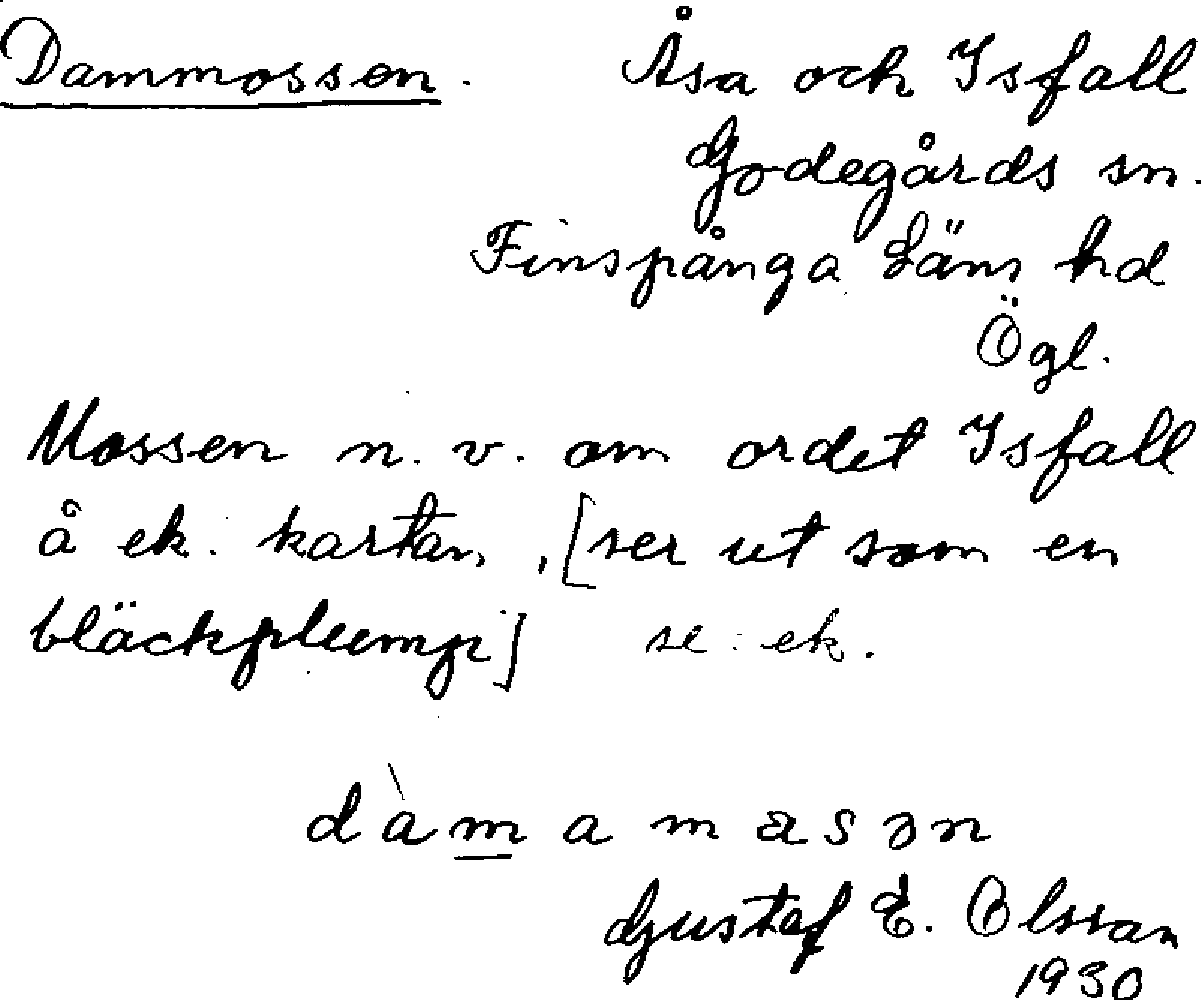 Dammossen. Åsa och Isfall
Godegårds sn.
Finspånga Läns hd
Ögl.
Mossen n. v. om ordet Isfall
å ek. kartan, [ser ut som en
bläckplump] se: ek.
dàmamɑsən
Gustef E. Olssan
1930